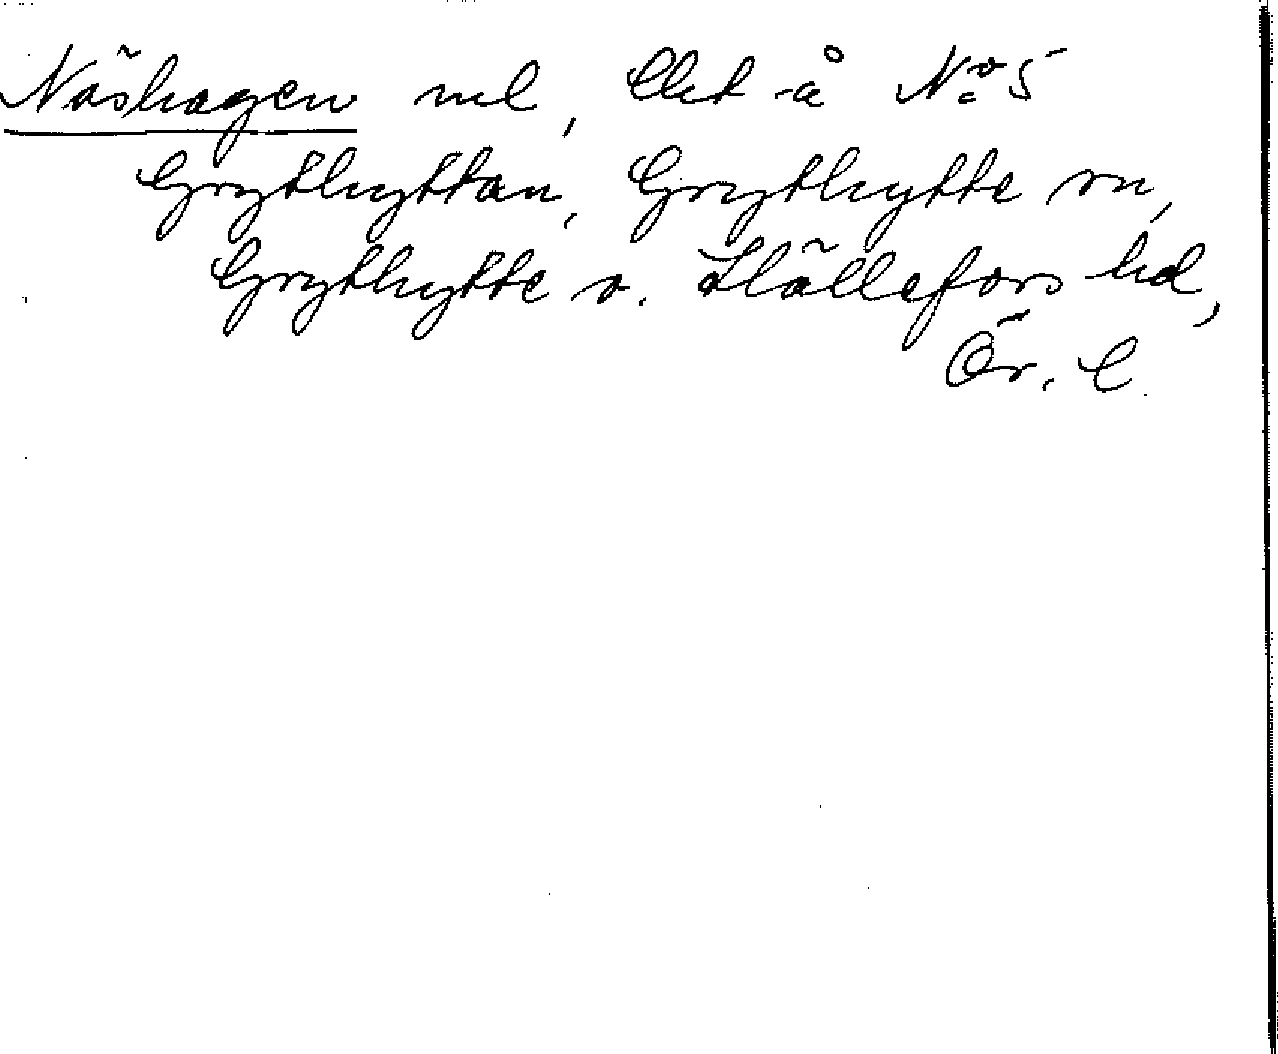 Näshagen ml, Ekt å No 5
Grythyttan, Grythytte sn,
Grythytte o. Hällefors hd,
Ör. l.